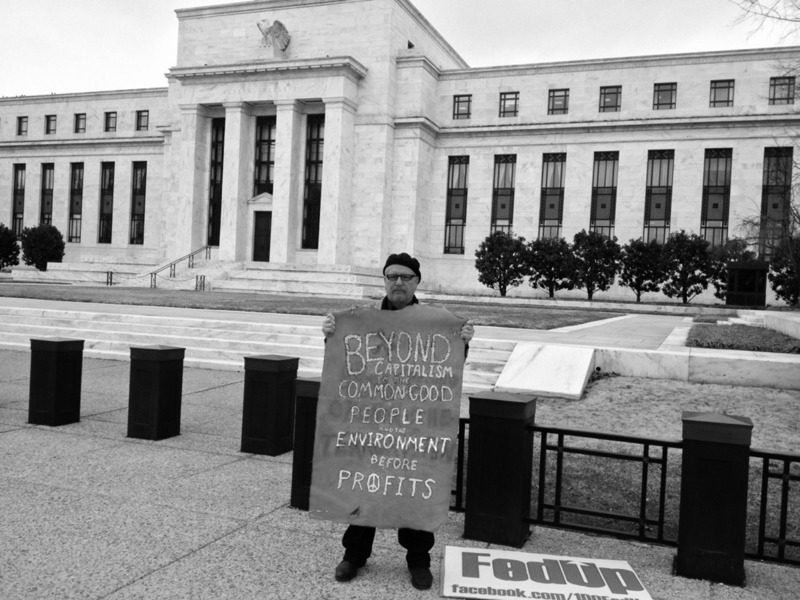 BEYOND
CAPITALISM
TO THE
COMMON GOOD
PEOPLE
AND THE
ENVIRONMENT
BEFORE
PROFITS
FedUp